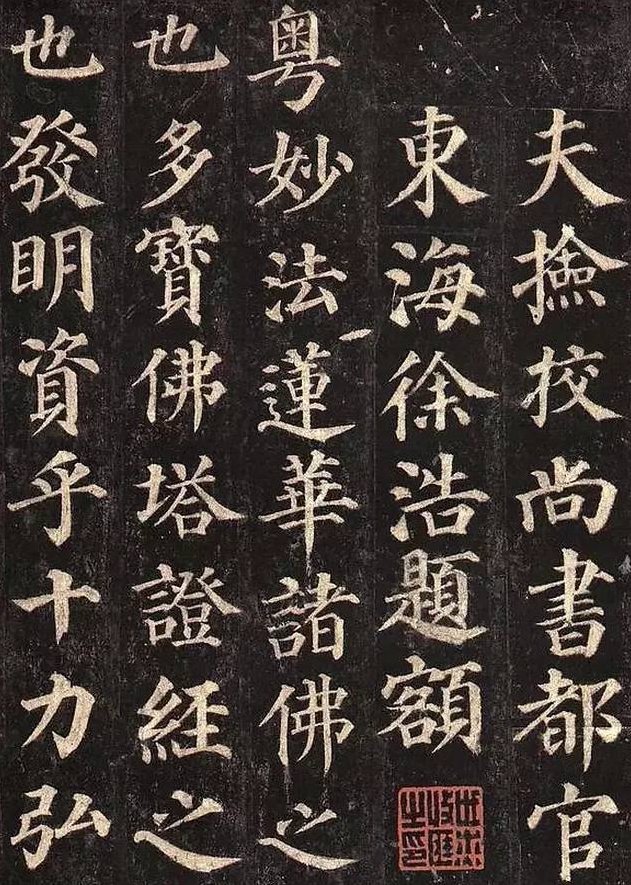 夫撿挍尚書都官
東海徐浩題額
粤妙法蓮華諸佛之
也多寶佛塔證經之
也發明資乎十力弘